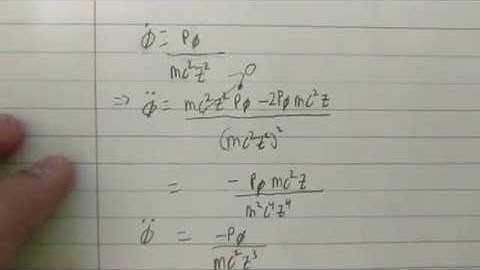 ϕ̇ = Pϕ / mc²z²
→ 0
⇒ ϕ̈ = (mc²z² Ṗϕ − 2Pϕ mc²z) / (mc²z²)²
= − Pϕ mc²z / m²c⁴z⁴
ϕ̈ = −Pϕ / mc²z³